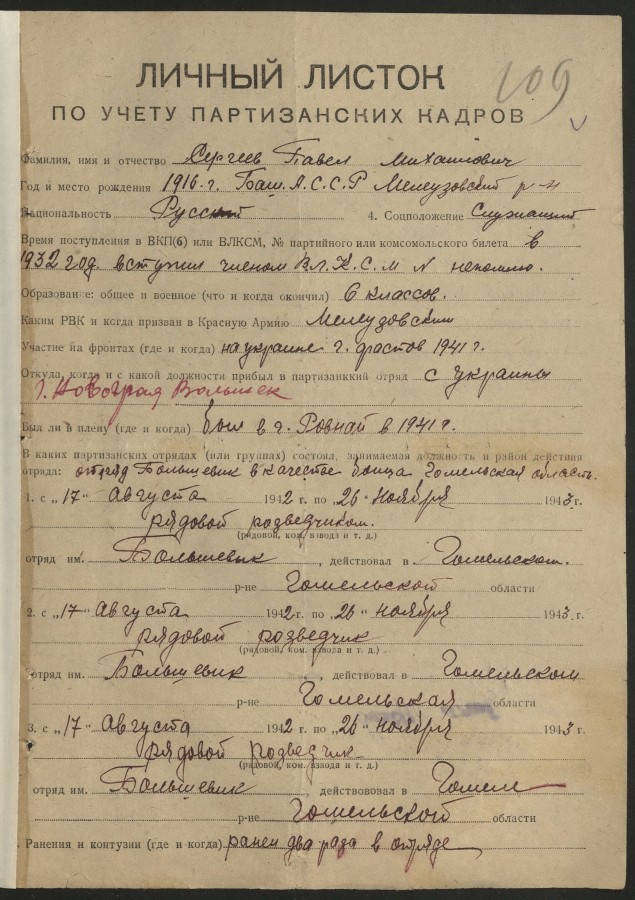 109
ЛИЧНЫЙ ЛИСТОК
ПО УЧЕТУ ПАРТИЗАНСКИХ КАДРОВ
Фамилия, имя и отчество Сергеев Павел Михаилович
Год и место рождения 1916 г. Баш. А.С.С.Р Мелеузовский р-н
Национальность Русский 4. Соцположение Служащий
Время поступления в ВКП(б) или ВЛКСМ, № партийного или комсомольского билета в
1932 год. вступил членом В.Л.К.С.М N непомню.
Образование: общее и военное (что и когда окончил) 6 классов.
Каким РВК и когда призван в Красную Армию Мелеузовским
Участие на фронтах (где и когда) на украине г. фастов 1941 г.
Откуда, когда и с какой должности прибыл в партизанкий отряд с украины
г. Новоград Волынск
Был ли в плену (где и когда) был в г. Ровнай в 1941 г.
В каких партизанских отрядах (или группах) состоял, занимаемая должность и район действия
отряда: отряд Большевик в качестве бойца Гомельская область.
1. с „17“ Августа 1942 г. по „26“ Ноября 1943 г.
рядовой розведчиком.
(рядовой, ком. взвода и т. д.)
отряд им. Большевик, действовал в Гомельском.
р-не Гомельской области
2. с „17“ Августа 1942 г. по „26“ ноября 1943 г.
рядовой розведчик
(рядовой, ком. взвода и т. д.)
отряд им. Большевик, действовал в Гомельском
р-не Гомельская области
3. с „17“ Августа 1942 г. по „26“ ноября 1943 г.
рядовой розведчик
(рядовой, ком. взвода и т. д.)
отряд им. Большевик, действововал в Гомел
р-не Гомельской области
Ранения и контузии (где и когда) ранен два раза в отряде